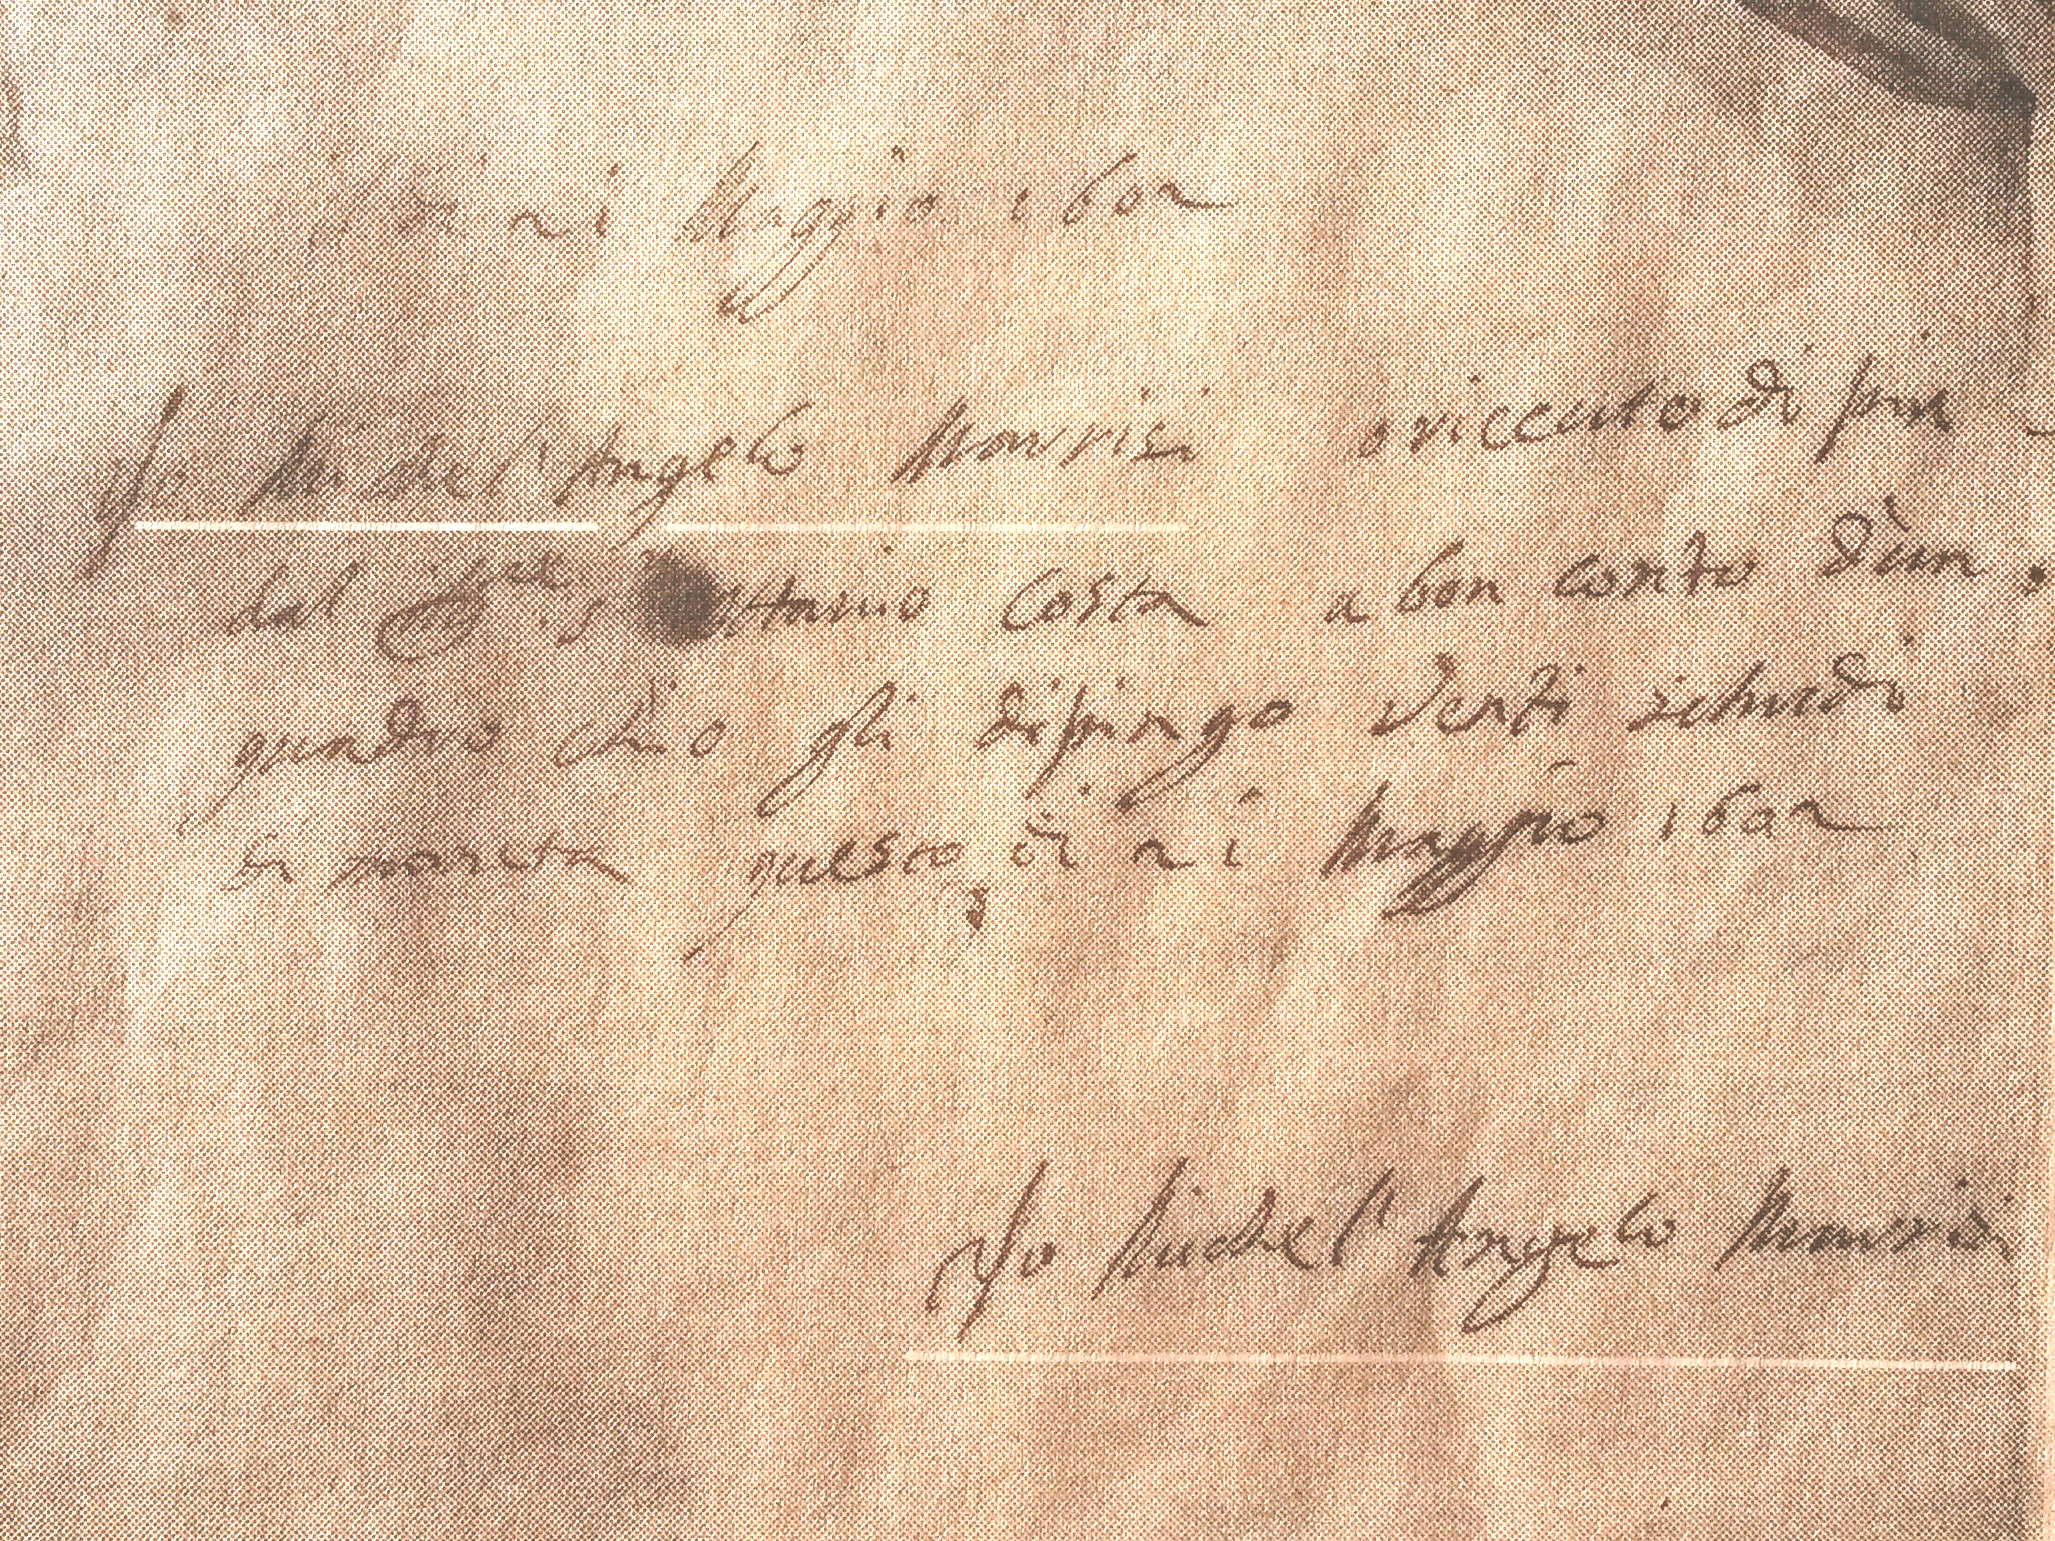 21 Maggio 1602
Io Michel'Angelo Marrisi o riceuto di piu
dal Ill.re S. Ottavio Costa a bon conto d'un
quadro ch'io gli dipingo venti schudi
di moneta questo di 21 Maggio 1602
Io Michel'Angelo Marrisi